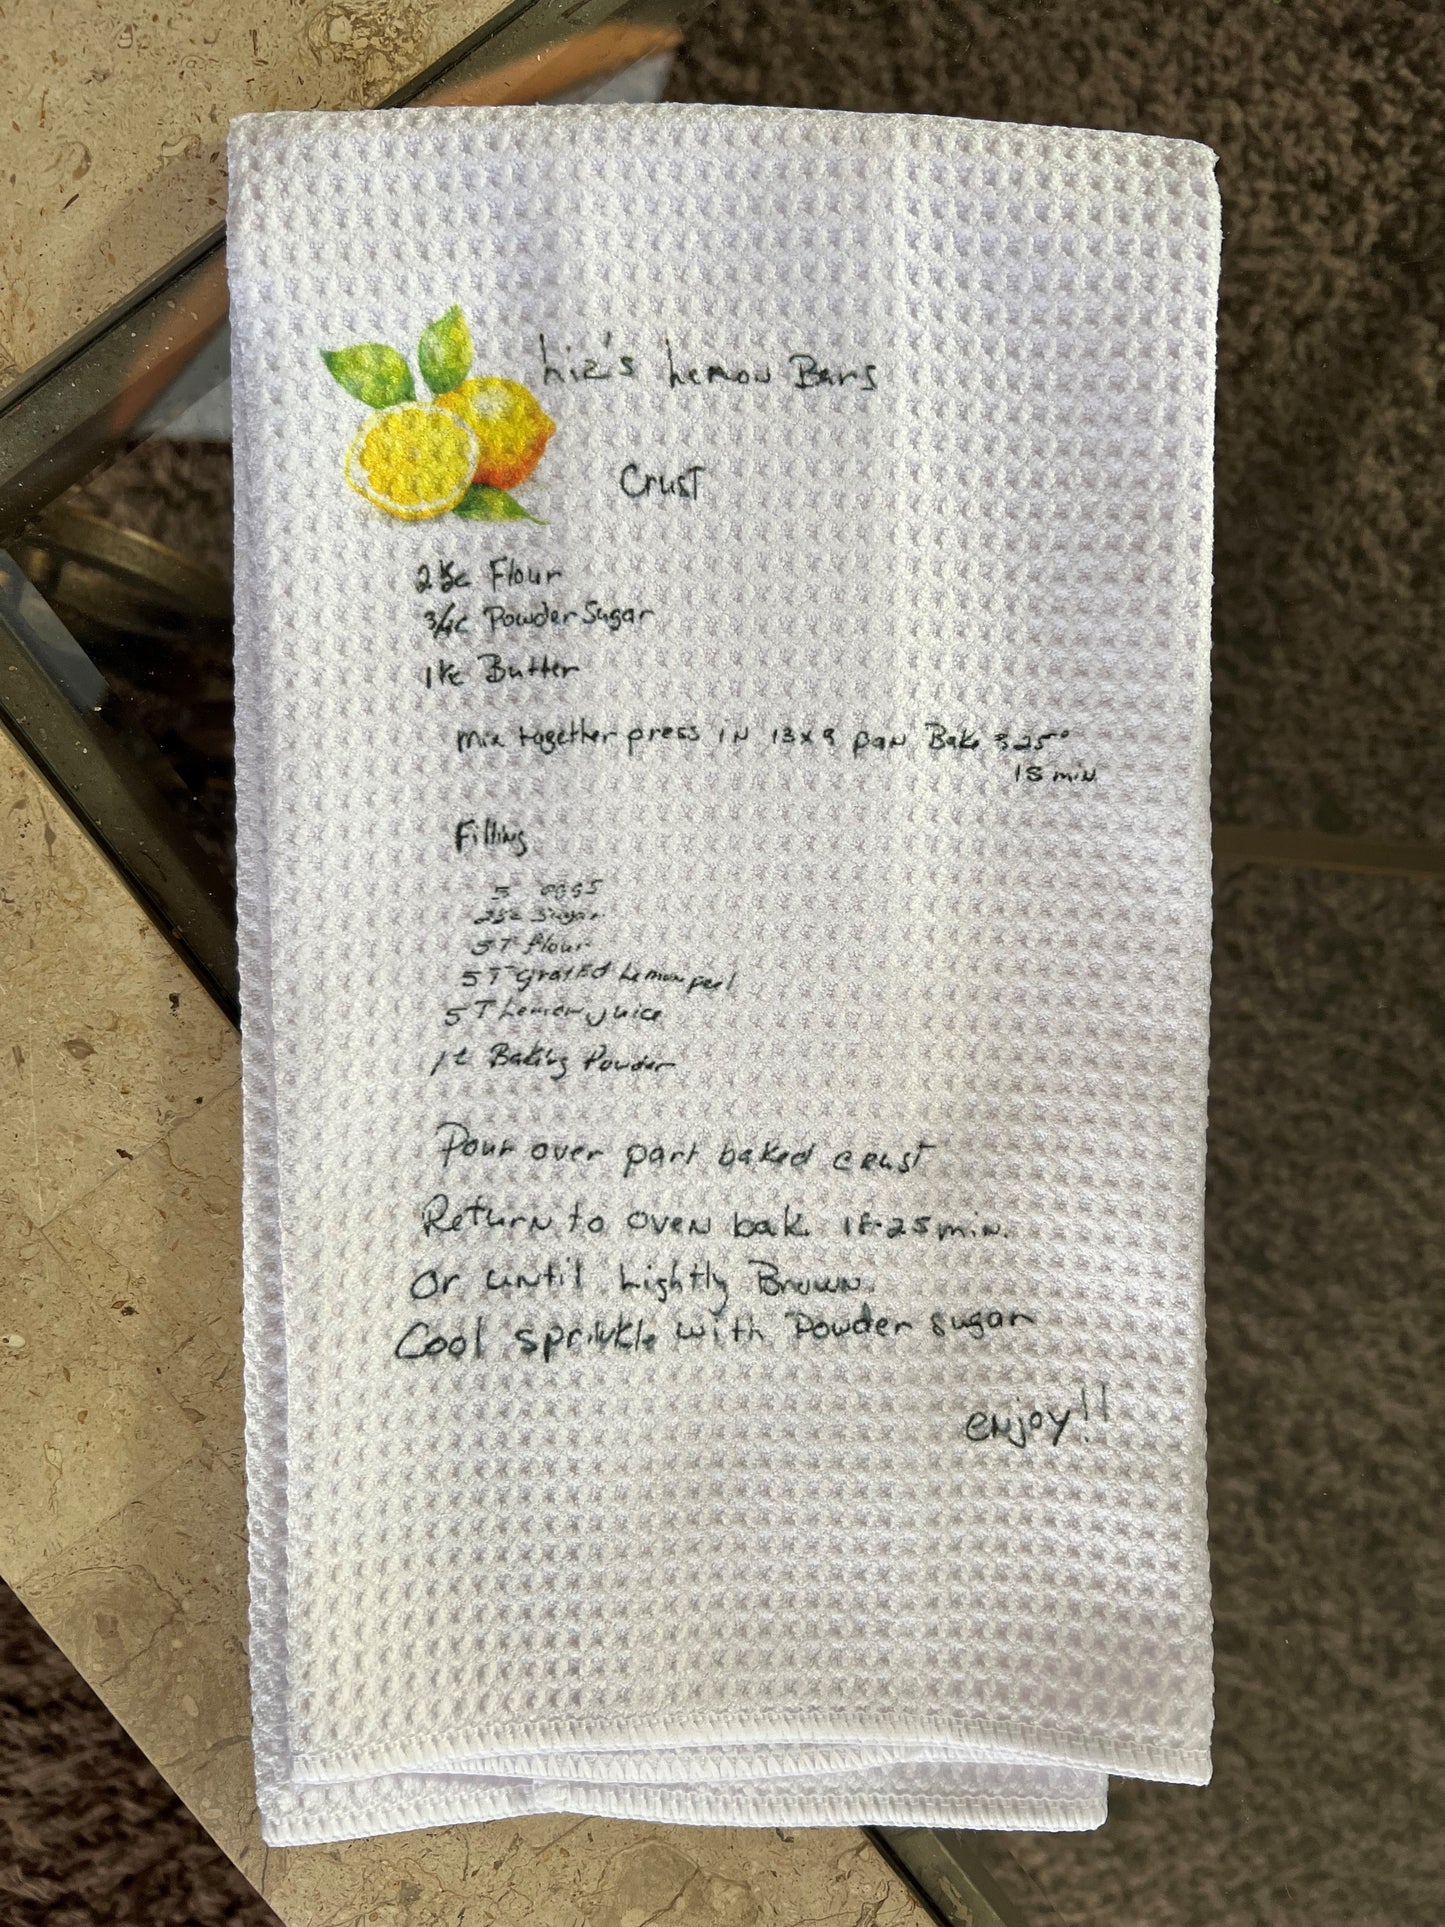 Liz's Lemon Bars
Crust
2 ½c Flour
3/4c Powder Sugar
1 ½c Butter
Mix together press in 13x9 pan Bake 325°
18 min
Filling
5 eggs
2½c Sugar
5 T flour
5 T grated Lemon peel
5 T Lemon juice
1 t Baking Powder
Pour over part baked crust
Return to oven bake 18-25 min.
Or until Lightly Brown.
Cool sprinkle with Powder sugar
enjoy!!